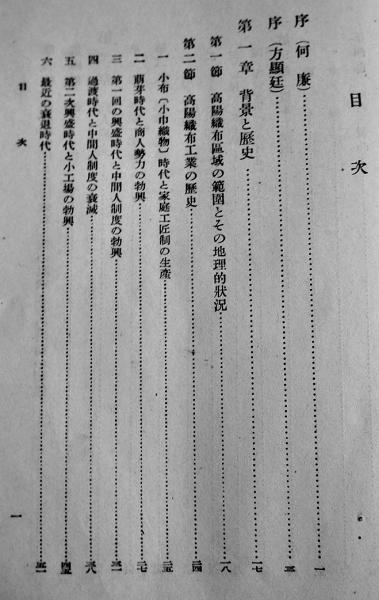 目次
序（何廉）…一
序（方顯廷）…三
第一章 背景と歷史…一七
第一節 高陽織布區域の範圍とその地理的狀況…一八
第二節 高陽織布工業の歷史…二四
一 小布〔小巾織物〕時代と家庭工匠制の生產…二五
二 萠芽時代と商人勢力の勃興…二七
三 第一回の興盛時代と中間人制度の勃興…三二
四 過渡時代と中間人制度の衰滅…三八
五 第二次興盛時代と小工場の勃興…四五
六 最近の衰退時代…五二
目次
一